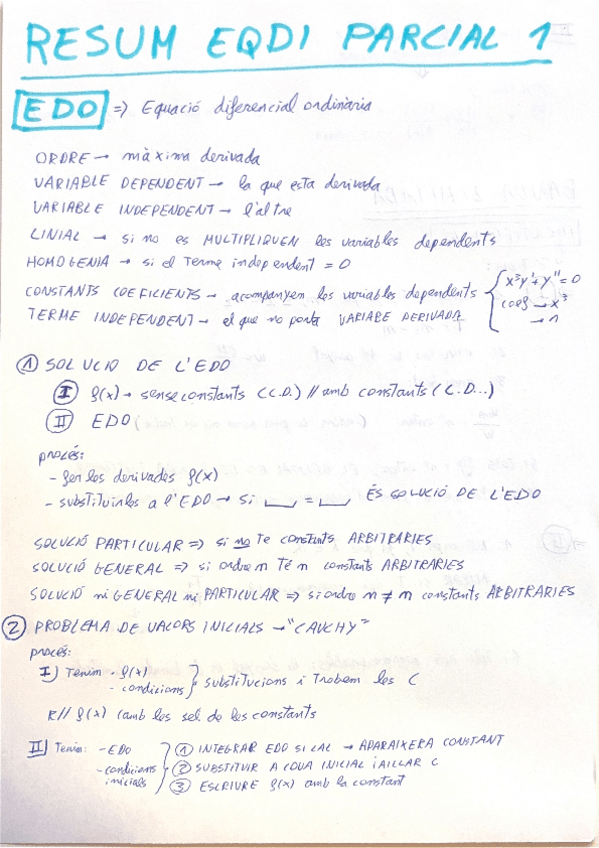 RESUM EQDI PARCIAL 1
EDO => Equació diferencial ordinària
ORDRE → màxima derivada
VARIABLE DEPENDENT → la que esta derivada
VARIABLE INDEPENDENT → l'altre
LINIAL → si no es MULTIPLIQUEN les variables dependents
HOMOGENIA → si el Terme independent = 0
CONSTANTS COEFICIENTS → acompanyen les variables dependents { x³y' + y'' = 0
coef → x³
→ 1
TERME INDEPENDENT → el que no porta VARIABE DERIVADA
① SOLUCIO DE L'EDO
Ⅰ f(x) → sense constants (C.D.) // amb constants (C.D...)
Ⅱ EDO
procés:
- fer les derivades f(x)
- substituirles a l'EDO → si ⎵ = ⎵ ÉS SOLUCIÓ DE L'EDO
SOLUCIÓ PARTICULAR => si no te constants ARBITRARIES
SOLUCIÓ GENERAL => si ordre n Té n constants ARBITRARIES
SOLUCIÓ ni GENERAL ni PARTICULAR => si ordre n ≠ n constants ARBITRARIES
② PROBLEMA DE VALORS INICIALS → "CAUCHY"
procés:
I) Tenim - f(x)
- condicions } substitucions i Trobem les C
R// f(x) (amb les sol de les constants
II) Tenim: - EDO
- condicions inicials
① INTEGRAR EDO SI CAL → APARAIXERA CONSTANT
② SUBSTITUIR A COVA INICIAL i AILLAR C
③ ESCRIURE f(x) amb la constant